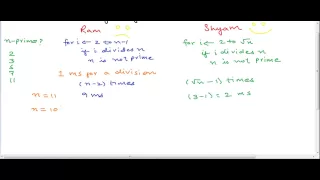 n-prime?
Ram
Shyam
2
3
5
7
11
for i ← 2 to n-1
if i divides n
n is not prime
1 ms for a division
(n-2) times
n = 11
9 ms
n = 10
for i ← 2 to √n
if i divides n
n is not prime
(√n -1) times
(3-1) = 2 ms